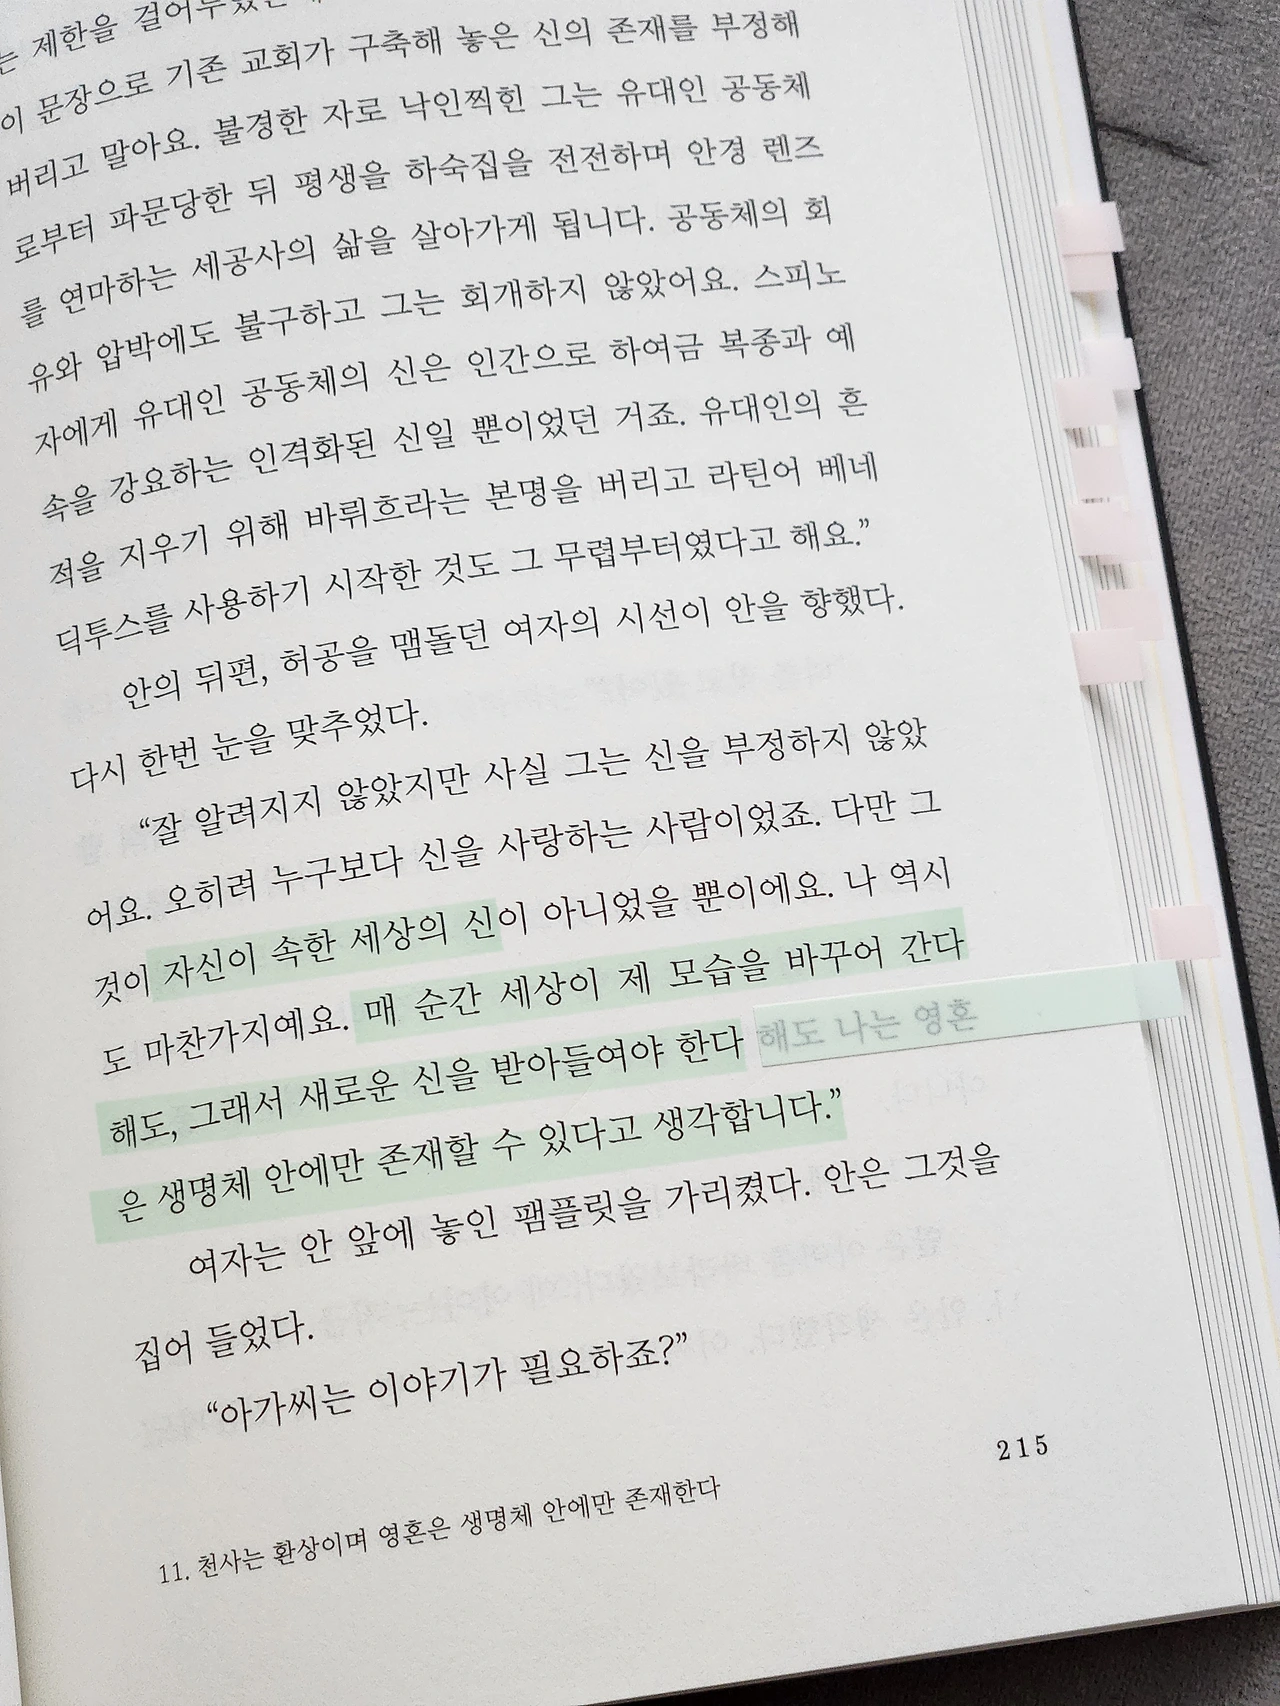 는 제한을 걸어두었는
이 문장으로 기존 교회가 구축해 놓은 신의 존재를 부정해
버리고 말아요. 불경한 자로 낙인찍힌 그는 유대인 공동체
로부터 파문당한 뒤 평생을 하숙집을 전전하며 안경 렌즈
를 연마하는 세공사의 삶을 살아가게 됩니다. 공동체의 회
유와 압박에도 불구하고 그는 회개하지 않았어요. 스피노
자에게 유대인 공동체의 신은 인간으로 하여금 복종과 예
속을 강요하는 인격화된 신일 뿐이었던 거죠. 유대인의 흔
적을 지우기 위해 바뤼흐라는 본명을 버리고 라틴어 베네
딕투스를 사용하기 시작한 것도 그 무렵부터였다고 해요.”
안의 뒤편, 허공을 맴돌던 여자의 시선이 안을 향했다.
다시 한번 눈을 맞추었다.
“잘 알려지지 않았지만 사실 그는 신을 부정하지 않았
어요. 오히려 누구보다 신을 사랑하는 사람이었죠. 다만 그
것이 자신이 속한 세상의 신이 아니었을 뿐이에요. 나 역시
도 마찬가지예요. 매 순간 세상이 제 모습을 바꾸어 간다
해도, 그래서 새로운 신을 받아들여야 한다 해도 나는 영혼
은 생명체 안에만 존재할 수 있다고 생각합니다.”
여자는 안 앞에 놓인 팸플릿을 가리켰다. 안은 그것을
집어 들었다.
“아가씨는 이야기가 필요하죠?”
215
11. 천사는 환상이며 영혼은 생명체 안에만 존재한다